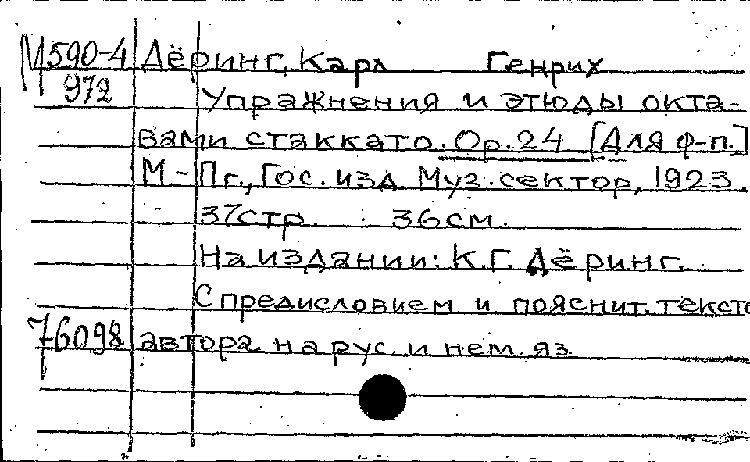 М590-4 Дёринг, Карл Генрих
972 Упражнения и этюды окта-
вами стаккато. Ор. 24 [Для ф-п.]
М-Пг., Гос. изд. Муз. сектор, 1923.
37стр. 36см.
На издании: К.Г. Дёринг.
С предисловием и пояснит. тексто
76098 автора на рус. и нем. яз.